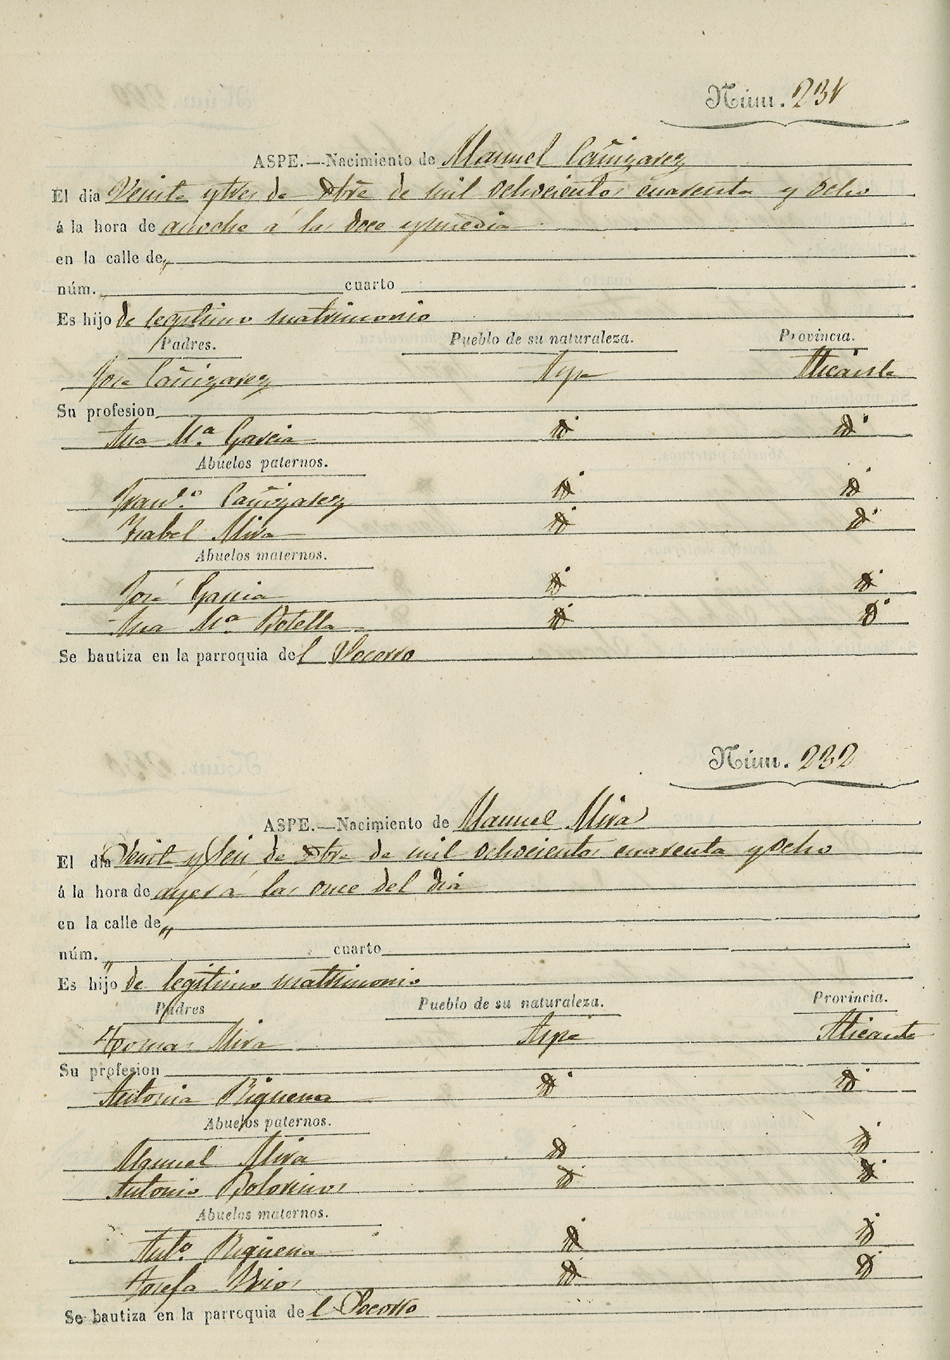 Núm. 231
ASPE.—Nacimiento de Manuel Cañizarez
El dia Veinte y tres de Xbre de mil ochocientos cuarenta y ocho
á la hora de anoche á las doce y media
en la calle de „
núm. cuarto
Es hijo de legitimo matrimonio
Padres. Pueblo de su naturaleza. Provincia.
Jose Cañizarez Aspe Alicante
Su profesion
Ana Mª Garcia id. id.
Abuelos paternos.
Franco. Cañizarez id. id.
Isabel Mira id. id.
Abuelos maternos.
José Garcia id. id.
Ana Mª Botella id. id.
Se bautiza en la parroquia del Socorro
Núm. 232
ASPE.—Nacimiento de Manuel Mira
El dia Veinte y seis de Xbre de mil ochocientos cuarenta y ocho
á la hora de ayer á las once del dia
en la calle de „
núm. „ cuarto
Es hijo de legitimo matrimonio
Padres Pueblo de su naturaleza. Provincia.
Tomas Mira Aspe Alicante
Su profesion
Antonia Riquena id. id.
Abuelos paternos.
Manuel Mira id. id.
Antonio id. id.
Abuelos maternos.
Anto. Riquena id. id.
Josefa id. id.
Se bautiza en la parroquia de l Socorro